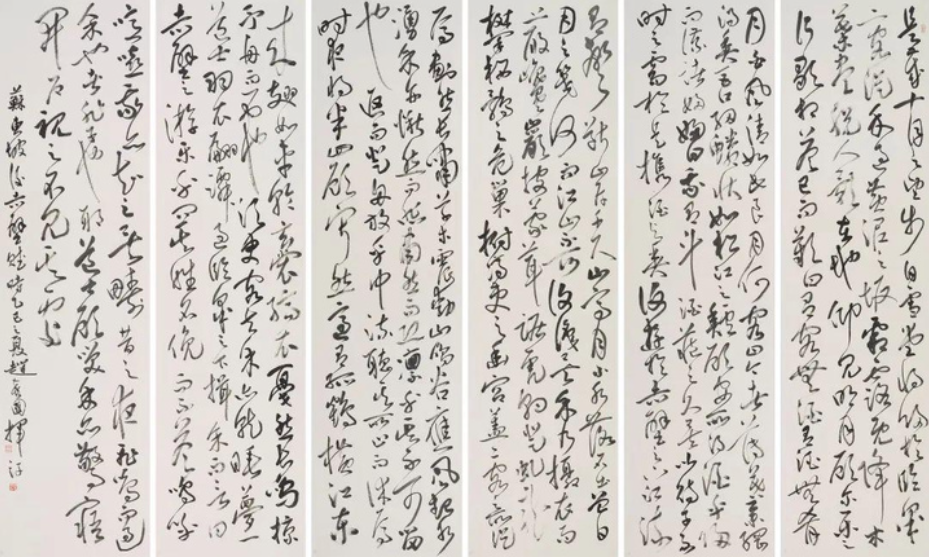 是歲十月之望步自雪堂將歸於臨皋
二客從余過黃泥之坂霜露既降木
葉盡脫人影在地仰見明月顧而樂之
行歌相答已而歎曰有客無酒有酒無肴
月白風清如此良夜何客曰今者薄暮舉網
得魚巨口細鱗狀如松江之鱸顧安所得酒乎歸
而謀諸婦婦曰我有斗酒藏之久矣以待子不
時之需於是攜酒與魚復遊於赤壁之下江流
有聲斷岸千尺山高月小水落石出曾日
月之幾何而江山不可復識矣余乃攝衣而
上履巉巖披蒙茸踞虎豹登虬龍
攀棲鶻之危巢俯馮夷之幽宮蓋二客不能從
焉劃然長嘯草木震動山鳴谷應風起水
湧余亦悄然而悲肅然而恐凜乎其不可留
也返而登舟放乎中流聽其所止而休焉
時夜將半四顧寂然適有孤鶴橫江東
來翅如車輪玄裳縞衣戛然長鳴掠
予舟而西也須臾客去余亦就睡夢一
道士羽衣翩躚過臨皋之下揖余而言曰
赤壁之遊樂乎問其姓名俛而不答嗚呼
噫嘻我知之矣疇昔之夜飛鳴而過
余者非子也耶道士顧笑余亦驚寤
開戶視之不見其處
蘇東坡後赤壁賦時乙巳之夏趙國揮汗